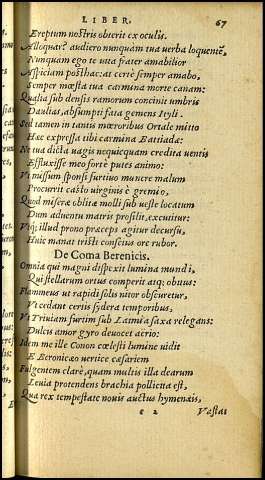 LIBER. 67
Ereptum nostris obterit ex oculis.
Alloquar? audiero nunquam tua uerba loquentē,
Nunquam ego te uita frater amabilior
Aspiciam posthac: at certè semper amabo,
Semper mœsta tua carmina morte canam:
Qualia sub densis ramorum concinit umbris
Daulias, absumpti fata gemens Ityli.
Sed tamen in tantis mœroribus Ortale mitto
Hæc expressa tibi carmina Battiadæ:
Ne tua dicta uagis nequicquam credita uentis
Effluxisse meo forte putes animo:
Vt missum sponsi furtiuo munere malum
Procurrit casto uirginis è gremio,
Quod miseræ oblitæ molli sub ueste locatum
Dum aduentu matris prosilit, excutitur:
Atq; illud prono præceps agitur decursu,
Huic manat tristi conscius ore rubor.
De Coma Berenicis.
Omnia qui magni dispexit lumina mundi,
Qui stellarum ortus comperit atq; obitus:
Flammeus ut rapidi solis nitor obscuretur,
Vt cedant certis sydera temporibus,
Vt Triuiam furtim sub Latmia saxa relegans:
Dulcis amor gyro deuocet aërio:
Idem me ille Conon cœlesti lumine uidit
E Beronicæo uertice cæsariem
Fulgentem clarè, quam multis illa dearum
Leuia protendens brachia pollicita est,
Qua rex tempestate nouis auctus hymenæis,
e 2 Vastat